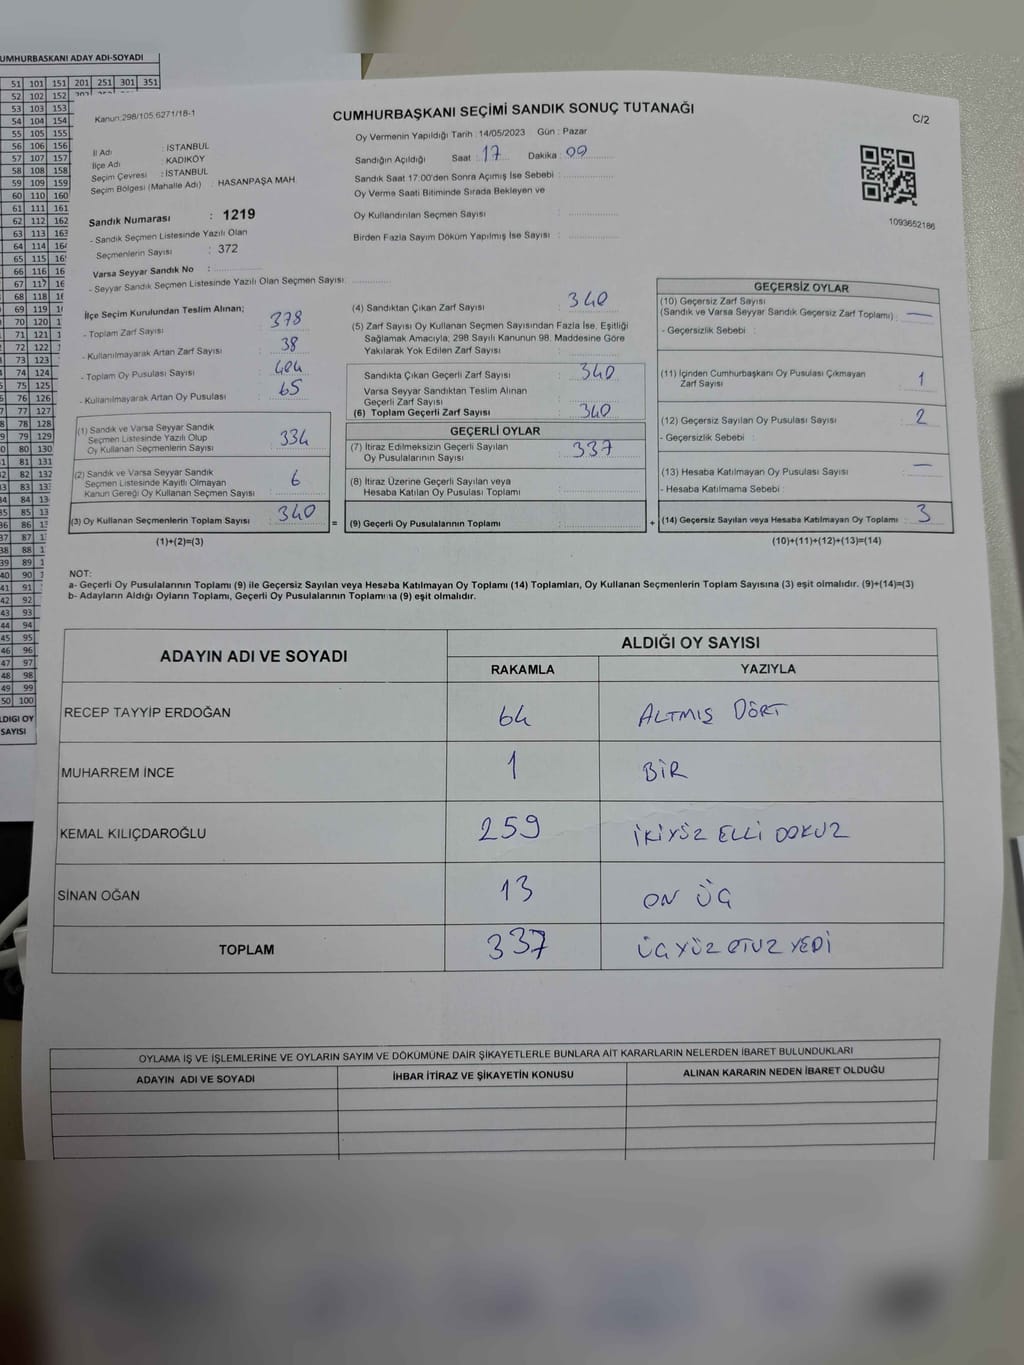 UMHURBAŞKANI ADAY ADI-SOYADI
51 101 151 201 251 301 351
52 102 152
53 103 153
54 104 154
55 105 155
56 106 156
57 107 157
58 108 158
59 109 159
60 110 160
61 111 161
62 112 162
63 113 163
64 114
65 115
66 116
67 117
68 118
69 119
70 120
71 121
72 122
73 123
74 124
75 125
76 126
77 127
78 128
79 129
80 130
81 131
82 132
83
84
85
86
87
88
89
90
91
92
93
94
95
96
97
98
99
50 100
LDIGI OY
SAYISI
Kanun:298/105.6271/18-1
CUMHURBAŞKANI SEÇİMİ SANDIK SONUÇ TUTANAĞI
C/2
Oy Vermenin Yapıldığı Tarih : 14/05/2023 Gün : Pazar
İl Adı : İSTANBUL
İlçe Adı : KADIKÖY
Seçim Çevresi : İSTANBUL
Seçim Bölgesi (Mahalle Adı) : HASANPAŞA MAH.
Sandığın Açıldığı Saat : 17 Dakika : 09
Sandık Saat 17:00'den Sonra Açımış İse Sebebi :
Oy Verme Saati Bitiminde Sırada Bekleyen ve
Oy Kullandırılan Seçmen Sayısı :
Birden Fazla Sayım Döküm Yapılmış İse Sayısı :
1093652186
Sandık Numarası : 1219
- Sandık Seçmen Listesinde Yazılı Olan
Seçmenlerin Sayısı : 372
Varsa Seyyar Sandık No :
- Seyyar Sandık Seçmen Listesinde Yazılı Olan Seçmen Sayısı:
İlçe Seçim Kurulundan Teslim Alınan;
- Toplam Zarf Sayısı : 378
- Kullanılmayarak Artan Zarf Sayısı : 38
- Toplam Oy Pusulası Sayısı : 404
- Kullanılmayarak Artan Oy Pusulası : 65
(1) Sandık ve Varsa Seyyar Sandık
Seçmen Listesinde Yazılı Olup
Oy Kullanan Seçmenlerin Sayısı : 334
(2) Sandık ve Varsa Seyyar Sandık
Seçmen Listesinde Kayıtlı Olmayan
Kanun Gereği Oy Kullanan Seçmen Sayısı : 6
(3) Oy Kullanan Seçmenlerin Toplam Sayısı : 340
(1)+(2)=(3)
(4) Sandıktan Çıkan Zarf Sayısı : 340
(5) Zarf Sayısı Oy Kullanan Seçmen Sayısından Fazla İse, Eşitliği
Sağlamak Amacıyla; 298 Sayılı Kanunun 98. Maddesine Göre
Yakılarak Yok Edilen Zarf Sayısı :
Sandıkta Çıkan Geçerli Zarf Sayısı : 340
Varsa Seyyar Sandıktan Teslim Alınan
Geçerli Zarf Sayısı :
(6) Toplam Geçerli Zarf Sayısı : 340
GEÇERLİ OYLAR
(7) İtiraz Edilmeksizin Geçerli Sayılan
Oy Pusulalarının Sayısı : 337
(8) İtiraz Üzerine Geçerli Sayılan veya
Hesaba Katılan Oy Pusulası Toplamı :
= (9) Geçerli Oy Pusulalarının Toplamı :
GEÇERSİZ OYLAR
(10) Geçersiz Zarf Sayısı
(Sandık ve Varsa Seyyar Sandık Geçersiz Zarf Toplamı) : —
- Geçersizlik Sebebi :
(11) İçinden Cumhurbaşkanı Oy Pusulası Çıkmayan
Zarf Sayısı : 1
(12) Geçersiz Sayılan Oy Pusulası Sayısı : 2
- Geçersizlik Sebebi :
(13) Hesaba Katılmayan Oy Pusulası Sayısı : —
- Hesaba Katılmama Sebebi :
+ (14) Geçersiz Sayılan veya Hesaba Katılmayan Oy Toplamı : 3
(10)+(11)+(12)+(13)=(14)
NOT:
a- Geçerli Oy Pusulalarının Toplamı (9) ile Geçersiz Sayılan veya Hesaba Katılmayan Oy Toplamı (14) Toplamları, Oy Kullanan Seçmenlerin Toplam Sayısına (3) eşit olmalıdır. (9)+(14)=(3)
b- Adayların Aldığı Oyların Toplamı, Geçerli Oy Pusulalarının Toplamına (9) eşit olmalıdır.
ADAYIN ADI VE SOYADI
ALDIĞI OY SAYISI
RAKAMLA YAZIYLA
RECEP TAYYİP ERDOĞAN 64 ALTMIŞ DÖRT
MUHARREM İNCE 1 BİR
KEMAL KILIÇDAROĞLU 259 İKİYÜZ ELLİ DOKUZ
SİNAN OĞAN 13 ON ÜÇ
TOPLAM 337 ÜÇYÜZ OTUZ YEDİ
OYLAMA İŞ VE İŞLEMLERİNE VE OYLARIN SAYIM VE DÖKÜMÜNE DAİR ŞİKAYETLERLE BUNLARA AİT KARARLARIN NELERDEN İBARET BULUNDUKLARI
ADAYIN ADI VE SOYADI İHBAR İTİRAZ VE ŞİKAYETİN KONUSU ALINAN KARARIN NEDEN İBARET OLDUĞU